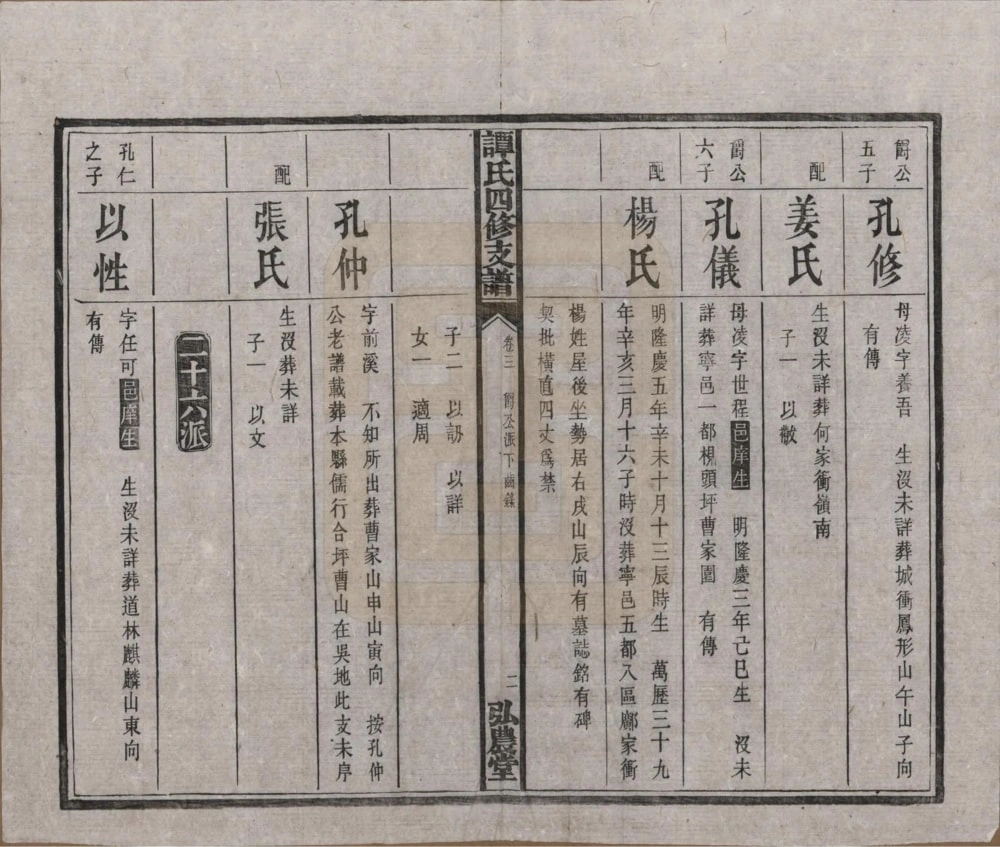 爵公
五子
孔修
母凌字養吾　生沒未詳葬城衝鳳形山午山子向
有傳
配
姜氏
生沒未詳葬何家衝嶺南
子一　以敏
爵公
六子
孔儀
母凌字世程邑庠生　明隆慶三年己巳生　沒未
詳葬寧邑一都梘頭坪曹家園　有傳
配
楊氏
明隆慶五年辛未十月十三辰時生　萬歷三十九
年辛亥三月十六子時沒葬寧邑五都入區鄺家衝
楊姓屋後坐勢居右戌山辰向有墓誌銘有碑
契批橫直四丈爲禁
譚氏四修支譜
卷三　爵公派下齒錄
二
弘農堂
子二　以訒　以詳
女一　適周
孔仲
字前溪　不知所出葬曹家山申山寅向　按孔仲
公老譜載葬本縣儒行合坪曹山在吳地此支未序
配
張氏
生沒葬未詳
子一　以文
二十六派
孔仁
之子
以性
字任可邑庠生　生沒未詳葬道林麒麟山東向
有傳